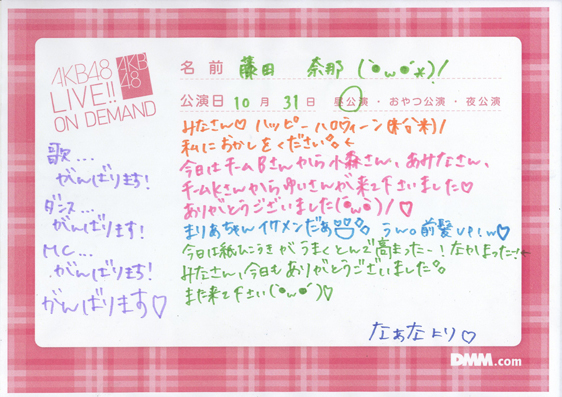 AKB48
LIVE!!
ON DEMAND
AKB
48
名前 藤田 奈那 (`・ω・´*)!
公演日 10月 31日 昼公演・おやつ公演・夜公演
みなさん♡ ハッピーハロウィーン(*合*)/
私におかしをください。
今日はチームBさんから小森さん、あみなさん、
チームKさんからゆいさんが来て下さいました♡
ありがとうございました(`・ω・´)/♡
まりあちゃんイケメンだぁ うん。前髪upしw♡
今日は紙ひこうきがうまくとんで高まったー!なかよまった
みなさん、今日もありがとうございました
また来て下さい(`・ω・´)♡
なぁなより♡
歌...
がんばります!
ダンス...
がんばります!
MC...
がんばります!
がんばります♡
DMM.com